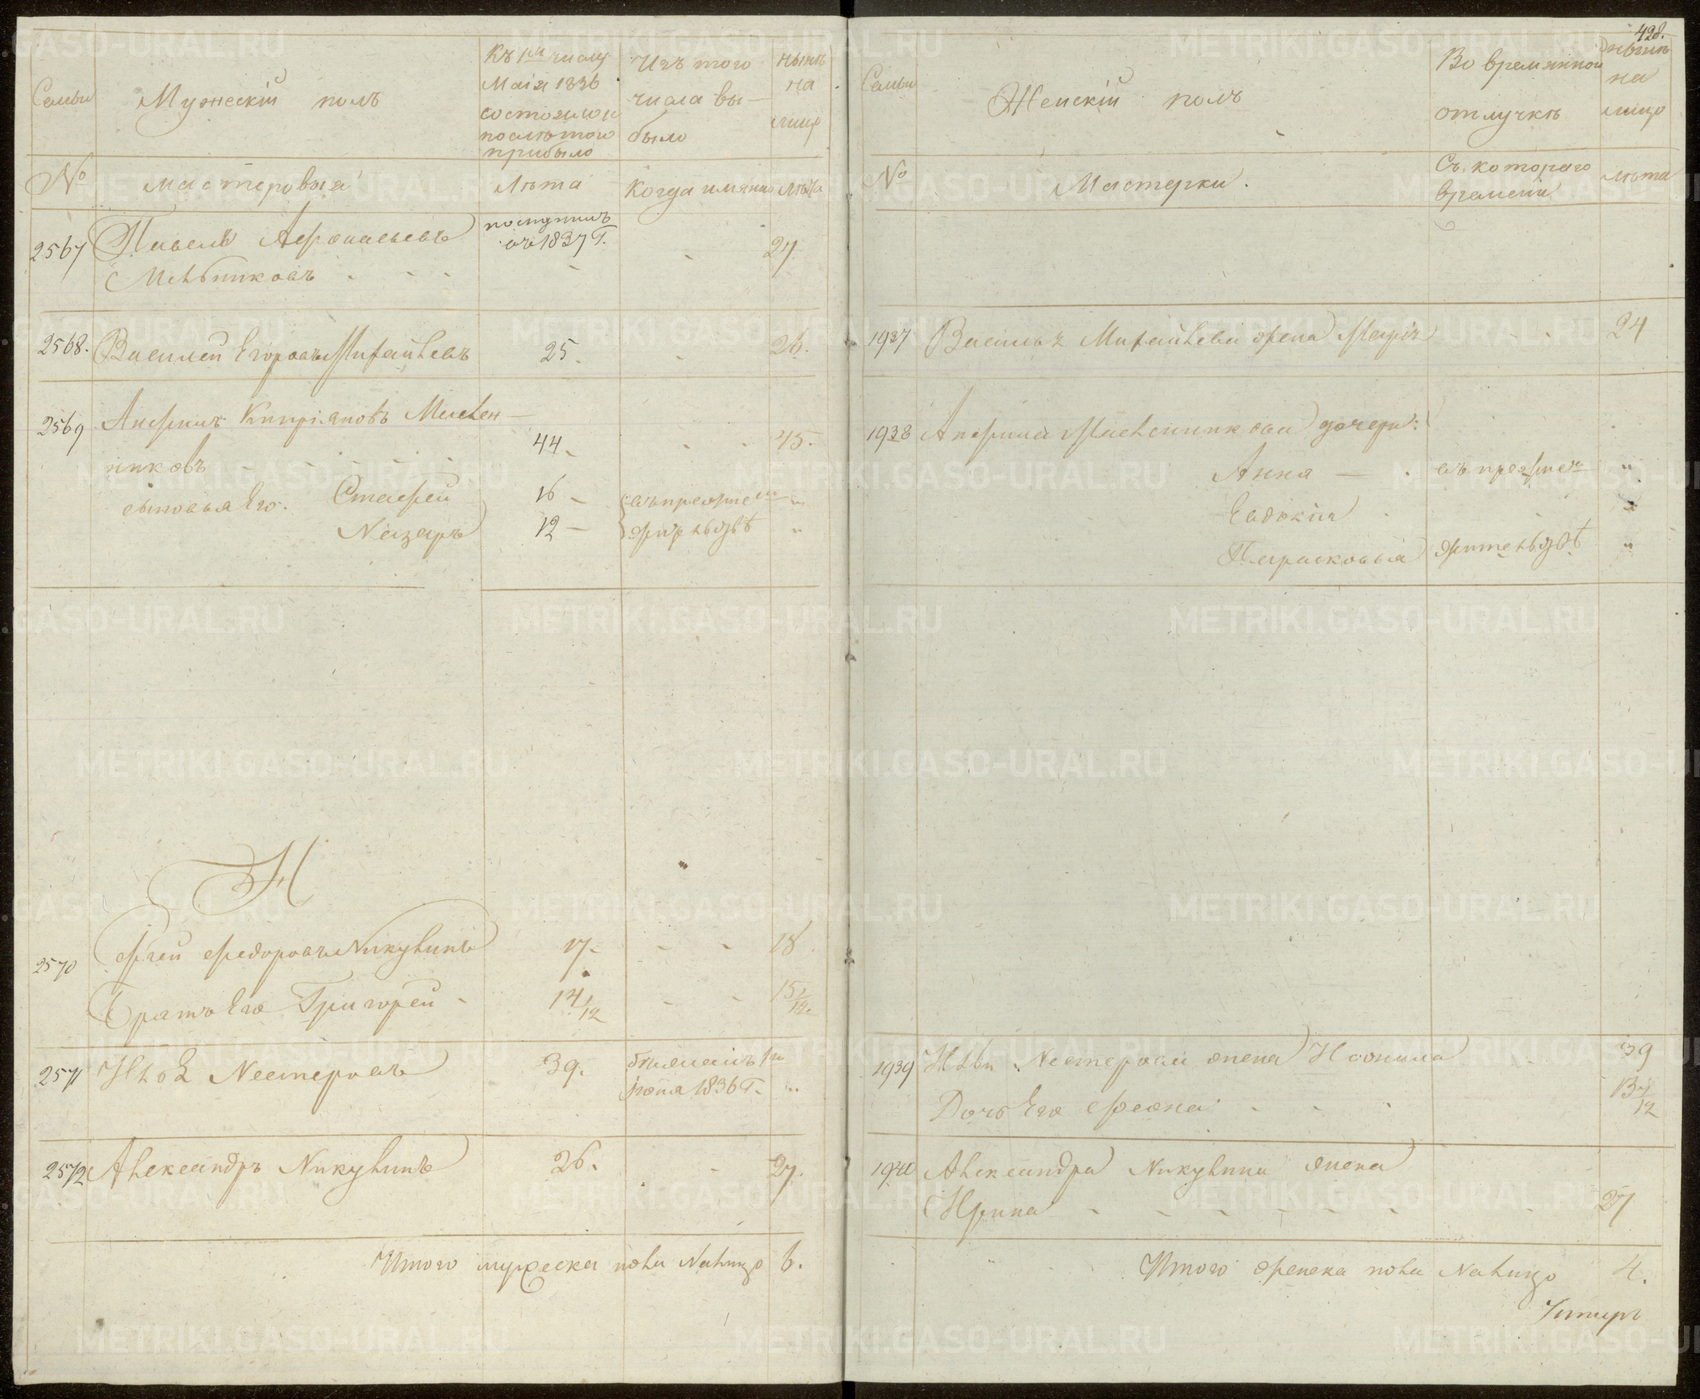 428.
Семьи
Мужескій полъ
Къ 1му числу
Маія 1836
состояло и
после того
прибыло
Изъ того
числа вы-
было
ныне
на
лицо
№
мастеровыя
Лета
Когда имянно
Лета
2567
Павелъ Афонасьевъ
Мельниковъ
поступилъ
въ 1837 Г.
27
2568.
Василей Егоровъ Михайлевъ
25.
26.
2569
Киприановъ
44
45.
сыновья Его.
16
въ прежнем
Назаръ
12
жительстве
Н
2570
Сергей Федоровъ Никулинъ
17
18.
Братъ Его Григорей
14 1/12
15 1/12
2571
Нестеровъ
39.
1го
1836 Г.
2572
Александръ Никулинъ
26.
27.
Итого мужеска пола налицо 6.
Семьи
Женскій полъ
Во временной
отлучке
ныне
на
лицо
№
Мастерки.
Съ котораго
времени
лета
1937
Василья Михайлева жена Марья
24
1938
дочери:
Анна
въ прежнем
Евдокия
Парасковья
жительстве
1939
Нестерова жена
39
Дочь Его
13 /12
1940
Александра Никулина жена
Ирина
27
Итого женска пола налицо 4.
METRIKI.GASO-URAL.RU